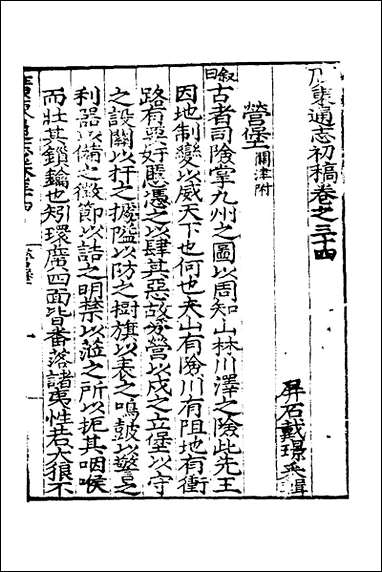 東通志初稿卷之三十四
屏石戴璟采輯
營堡 關津附
叙曰古者司險掌九州之圖以周知山林川澤之險此先王
因地制變以威天下也何也夫山有險川有阻地有衝
路有惡奸慝憑之以肆其惡故築營以戍之立堡以守
之設關以扞之據隘以防之樹旗以表之鳴鼓以警之
利器以備之徵節以詰之明禁以蒞之所以扼其咽喉
而壯其鎖鑰也矧環廣四面皆番落諸夷性若犬狼不